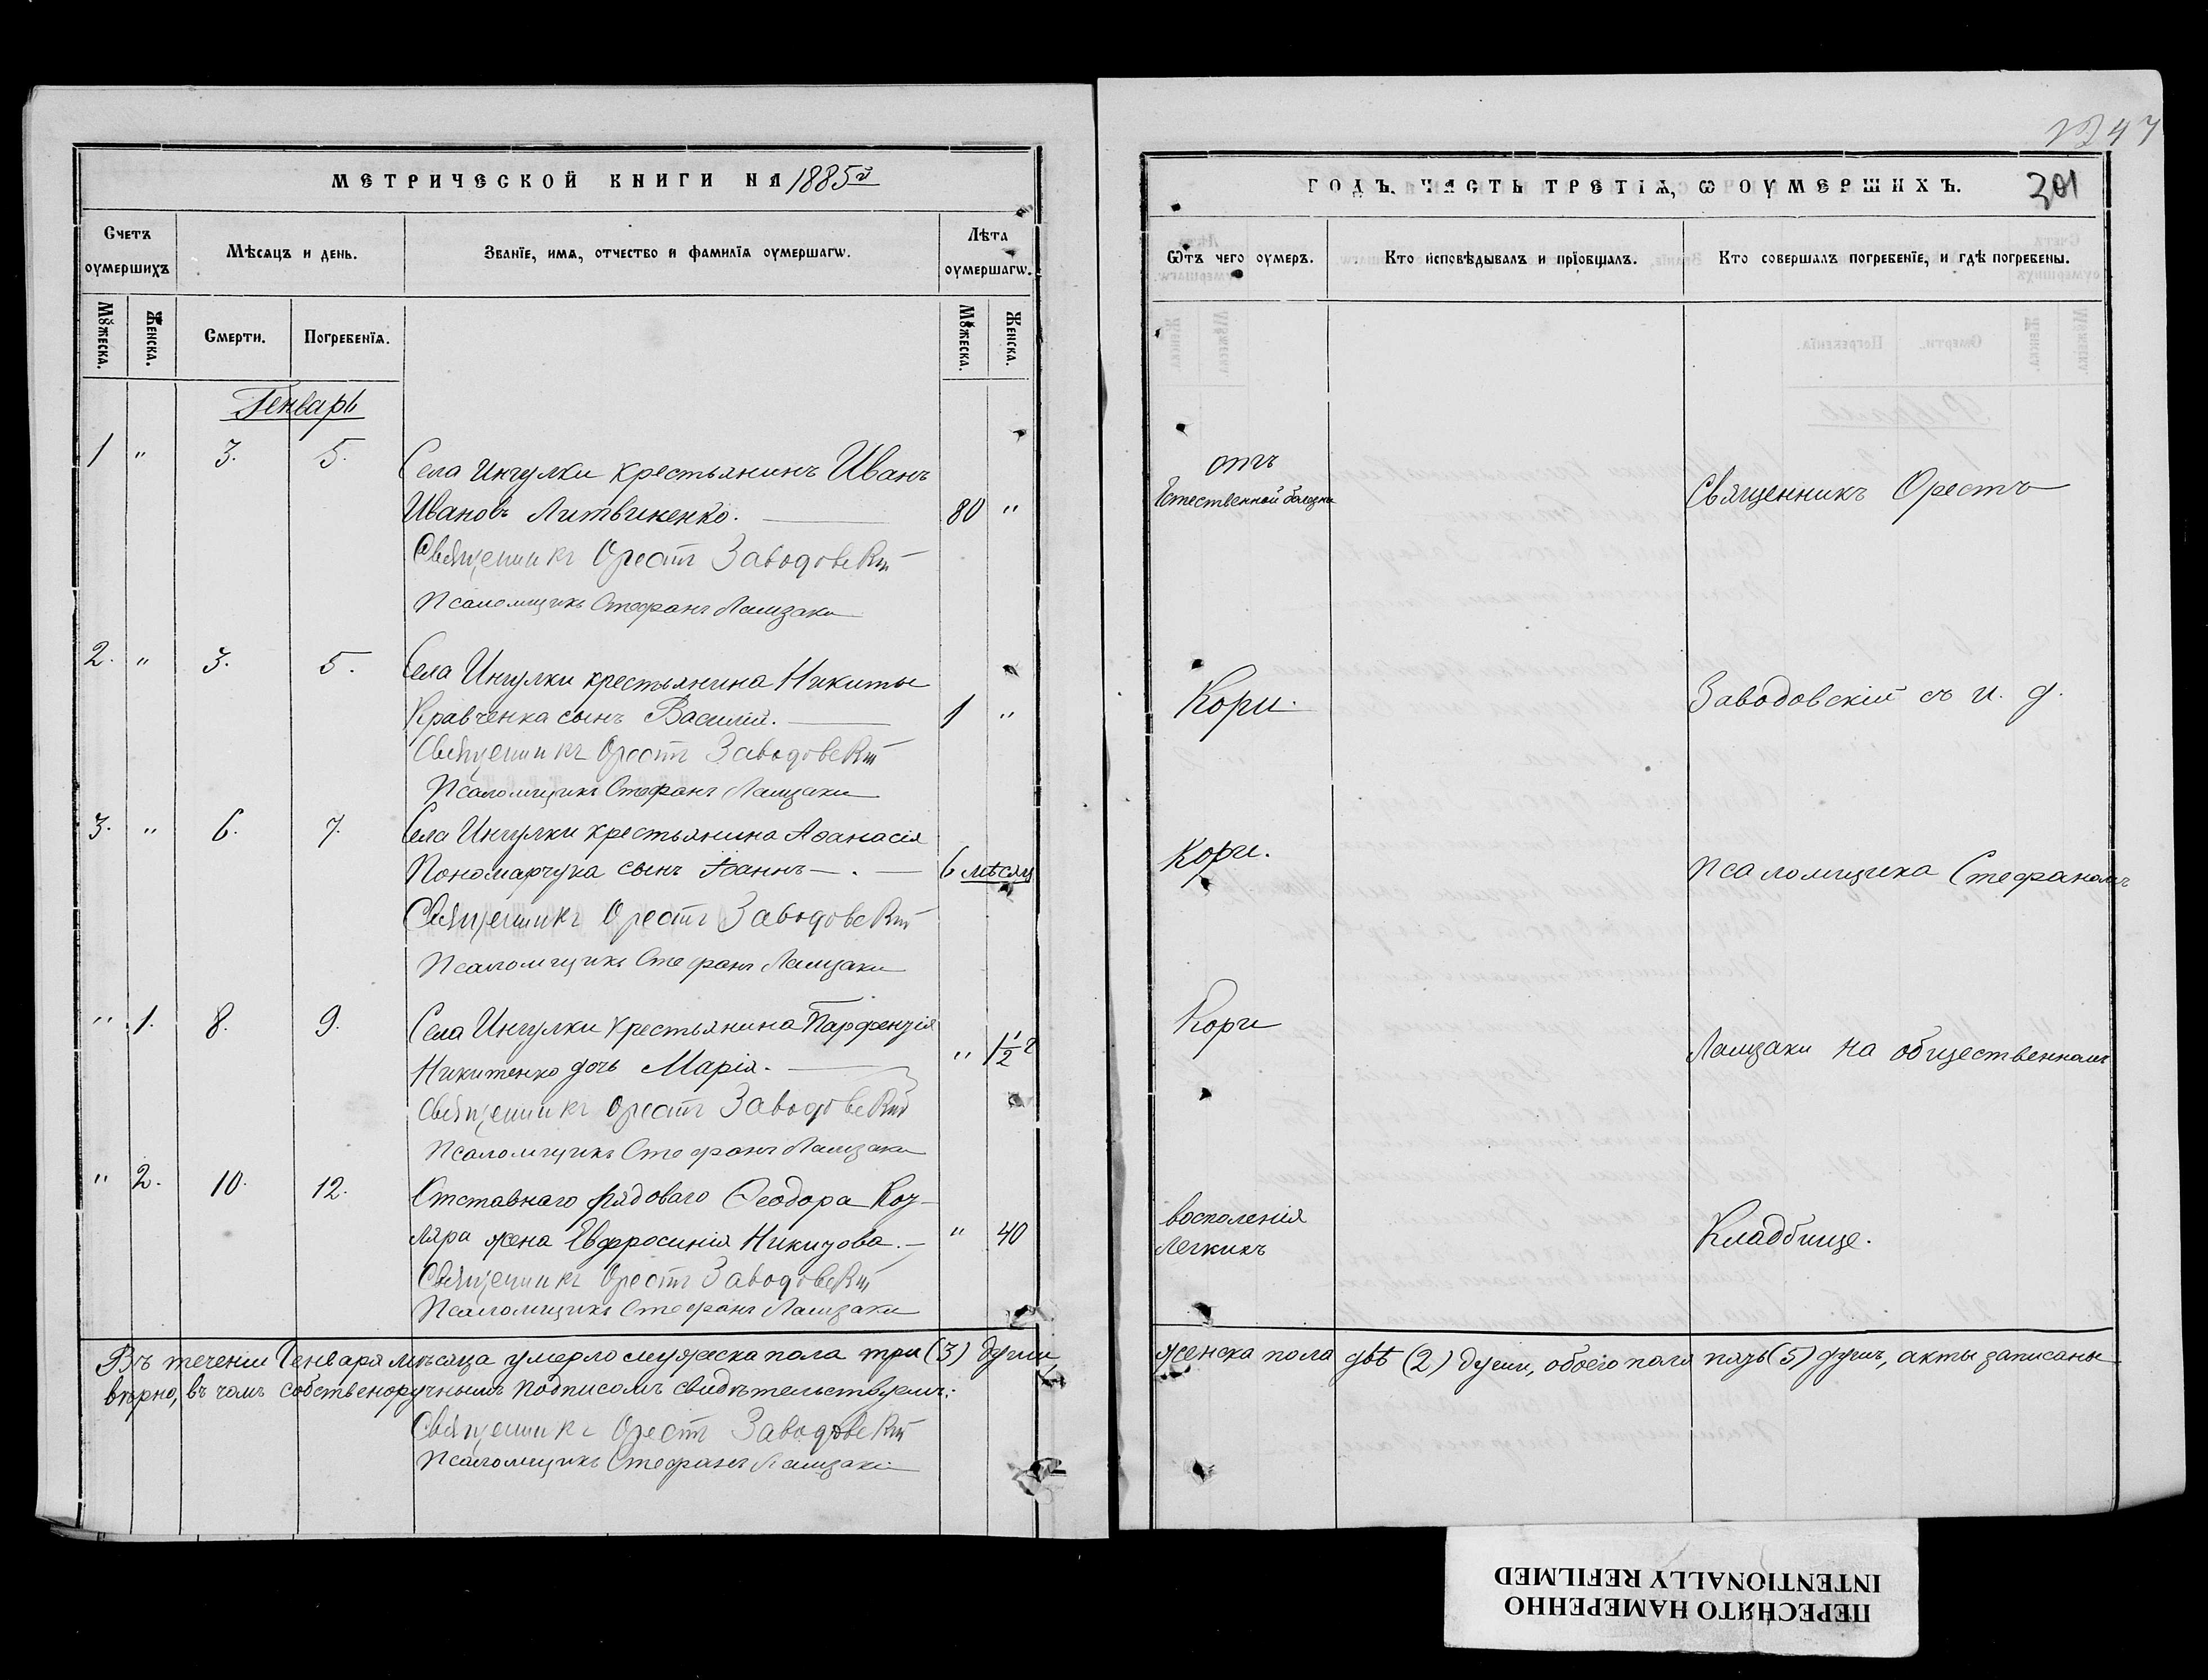 МЕТРИЧЕСКОЙ КНИГИ НА 1885й
Счетъ оумершихъ
Мѣсяцъ и день.
Званїе, имя, отчество и фамилїя оумершагѡ.
Лѣта оумершагѡ.
Мꙋжеска.
Женска.
Смерти.
Погребенїя.
Мꙋжеска.
Женска.
Генварь
1 " 3. 5. Села Ингулки крестьянинъ Иванъ
Ивановъ Литвиненко. 80 "
Священникъ Орестъ Заводовскій
Псаломщикъ Стефанъ Ламзаки
2. " 3. 5. Села Ингулки крестьянина Никиты
Кравченка сынъ Василій. 1 "
Священникъ Орестъ Заводовскій
Псаломщикъ Стефанъ Ламзаки
3. " 6. 7. Села Ингулки крестьянина Аѳанасія
Пономарчука сынъ Іоаннъ 6 мѣсяц
Священникъ Орестъ Заводовскій
Псаломщикъ Стефанъ Ламзаки
" 1. 8. 9. Села Ингулки крестьянина
Никитенко дочь Марія. " 1 1/2 г
Священникъ Орестъ Заводовскій
Псаломщикъ Стефанъ Ламзаки
" 2. 10. 12. Отставнаго рядоваго Ѳеодора Коз-
ляра жена Евфросинія Никизова. " 40
Священникъ Орестъ Заводовскій
Псаломщикъ Стефанъ Ламзаки
Въ теченіи Генваря мѣсяца умерло мужеска пола три (3) души
вѣрно, въ чемъ собственоручнымъ подписомъ свидѣтельствуемъ:
Священникъ Орестъ Заводовскій
Псаломщикъ Стефанъ Ламзаки
47
ГОДЪ, ЧАСТЬ ТРЕТІЯ, Ѡ ОУМЕРШИХЪ. 301
Ѿтъ чего оумеръ.
Кто исповѣдывалъ и прїобщалъ.
Кто совершалъ погребенїе, и гдѣ погребены.
отъ
Естественной болезни
Священникъ Орестъ
Кори.
Заводовскій съ и. д.
Кори.
псаломщика Стефаномъ
Кори
Ламзаки на общественномъ
восполенія
Легкихъ
Кладбище.
женска пола двѣ (2) души, обоего пола пять (5) душъ, акты записаны
ПЕРЕСНЯТО НАМЕРЕННО
INTENTIONALLY REFILMED